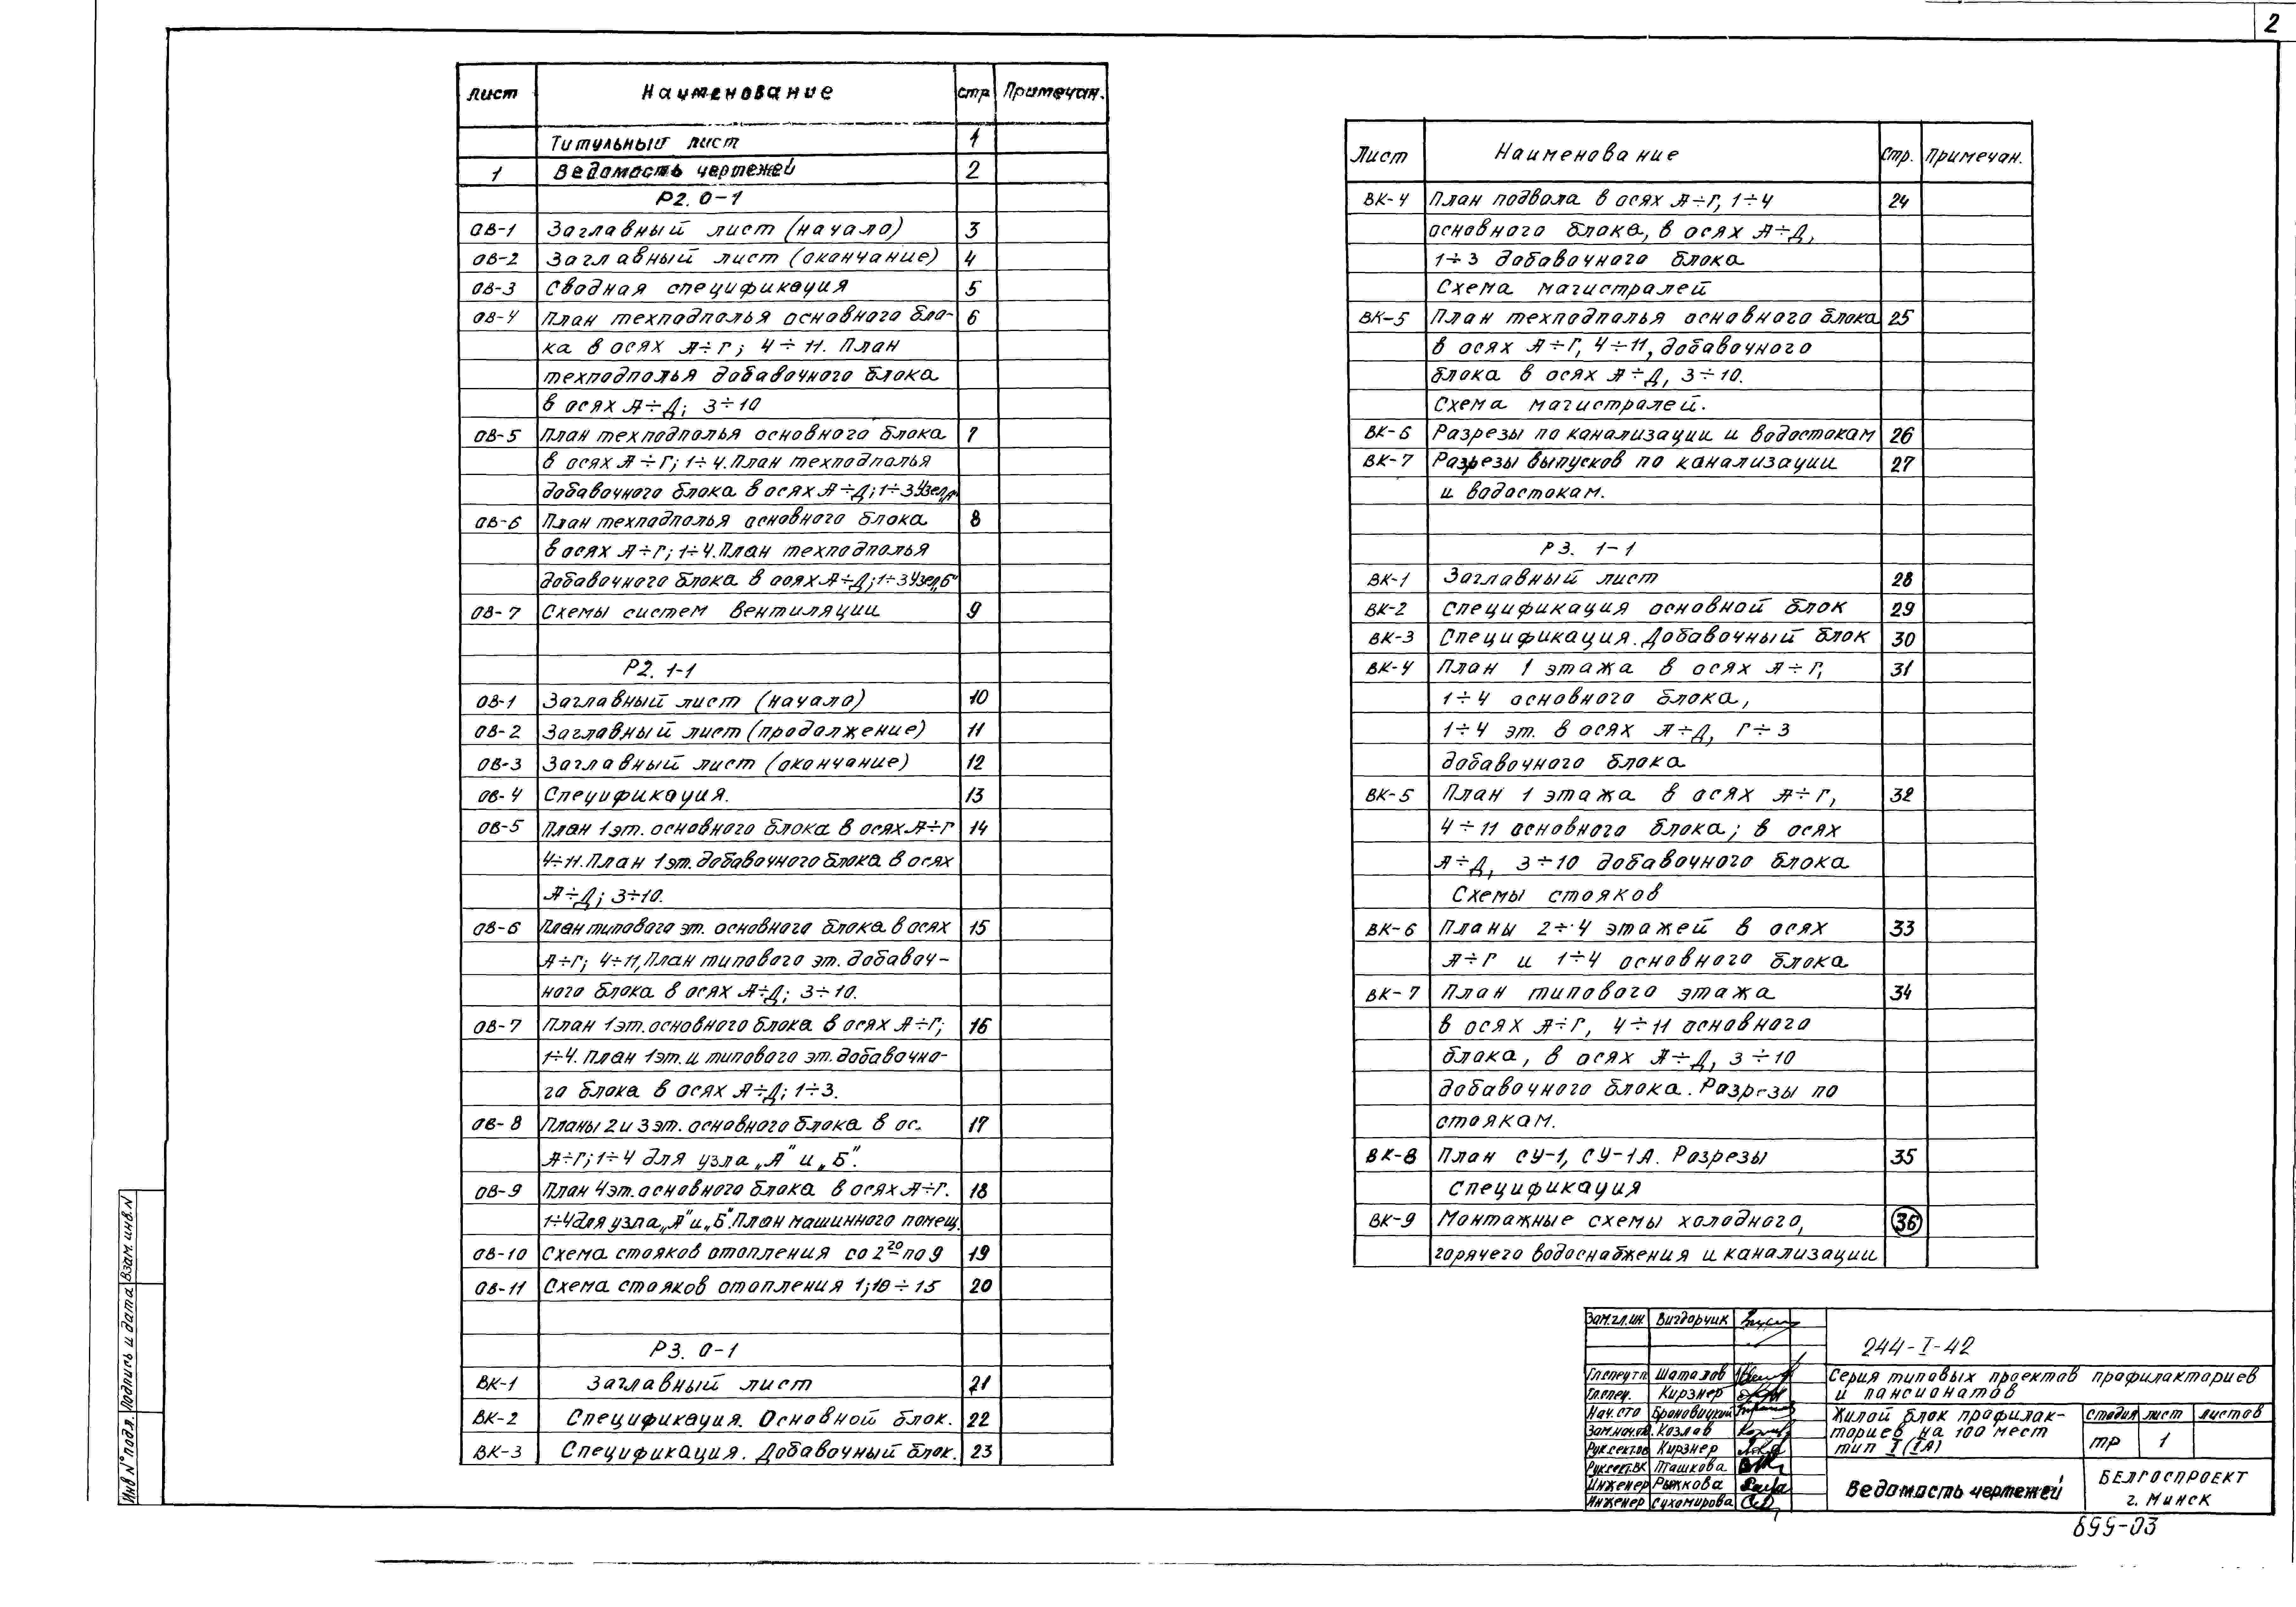 2
Лист Наименование стр Примечан.
Титульный лист 1
1 Ведомость чертежей 2
Р2. 0-1
ОВ-1 Заглавный лист (начало) 3
ОВ-2 Заглавный лист (окончание) 4
ОВ-3 Сводная спецификация 5
ОВ-4 План техподполья основного бло- 6
ка в осях А÷Г; 4÷11. План
техподполья добавочного блока
в осях А÷Д; 3÷10
ОВ-5 План техподполья основного блока 7
в осях А÷Г; 1÷4. План техподполья
добавочного блока в осях А÷Д; 1÷3 Узел „А"
ОВ-6 План техподполья основного блока 8
в осях А÷Г; 1÷4. План техподполья
добавочного блока в осях А÷Д; 1÷3 Узел „Б"
ОВ-7 Схемы систем вентиляции 9
Р2. 1-1
ОВ-1 Заглавный лист (начало) 10
ОВ-2 Заглавный лист (продолжение) 11
ОВ-3 Заглавный лист (окончание) 12
ОВ-4 Спецификация. 13
ОВ-5 План 1 эт. основного блока в осях А÷Г 14
4÷11. План 1 эт. добавочного блока в осях
А÷Д; 3÷10.
ОВ-6 План типового эт. основного блока в осях 15
А÷Г; 4÷11, План типового эт. добавоч-
ного блока в осях А÷Д; 3÷10.
ОВ-7 План 1 эт. основного блока в осях А÷Г; 16
1÷4. План 1 эт. и типового эт. добавочно-
го блока в осях А÷Д; 1÷3.
ОВ-8 Планы 2 и 3 эт. основного блока в ос. 17
А÷Г; 1÷4 для узла „А" и „Б".
ОВ-9 План 4 эт. основного блока в осях А÷Г. 18
1÷4 для узла „А" и „Б". План машинного помещ.
ОВ-10 Схема стояков отопления со 2го по 9 19
ОВ-11 Схема стояков отопления 1; 10÷15 20
Р3. 0-1
ВК-1 Заглавный лист 21
ВК-2 Спецификация. Основной блок. 22
ВК-3 Спецификация. Добавочный блок. 23
Лист Наименование Стр. Примечан.
ВК-4 План подвала в осях А÷Г, 1÷4 24
основного блока, в осях А÷Д,
1÷3 добавочного блока
Схема магистралей
ВК-5 План техподполья основного блока 25
в осях А÷Г, 4÷11, добавочного
блока в осях А÷Д, 3÷10.
Схема магистралей.
ВК-6 Разрезы по канализации и водостокам 26
ВК-7 Разрезы выпусков по канализации 27
и водостокам.
Р3. 1-1
ВК-1 Заглавный лист 28
ВК-2 Спецификация основной блок 29
ВК-3 Спецификация. Добавочный блок 30
ВК-4 План 1 этажа в осях А÷Г, 31
1÷4 основного блока,
1÷4 эт. в осях А÷Д, Г÷3
добавочного блока
ВК-5 План 1 этажа в осях А÷Г, 32
4÷11 основного блока; в осях
А÷Д, 3÷10 добавочного блока
Схемы стояков
ВК-6 Планы 2÷4 этажей в осях 33
А÷Г и 1÷4 основного блока
ВК-7 План типового этажа 34
в осях А÷Г, 4÷11 основного
блока, в осях А÷Д, 3÷10
добавочного блока. Разрезы по
стоякам.
ВК-8 План СУ-1, СУ-1А. Разрезы 35
Спецификация
ВК-9 Монтажные схемы холодного, 36
горячего водоснабжения и канализации
Зам.гл.ин. Вигдорчик
244-I-42
Гл.спец.тп Шаталов
Гл.спец. Кирзнер
Нач.сто Броновицкий
Зам.нач.отд. Козлов
Рук.сектов Кирзнер
Рук.сект.ВК Пташкова
Инженер Рыжкова
Инженер Сухомирова
Серия типовых проектов профилакториев
и пансионатов
Жилой блок профилак-
ториев на 100 мест
тип I (IА)
стадия лист листов
тр 1
Ведомость чертежей
БЕЛГОСПРОЕКТ
г. Минск
899-03
Инв № подл. Подпись и дата Взам. инв. N